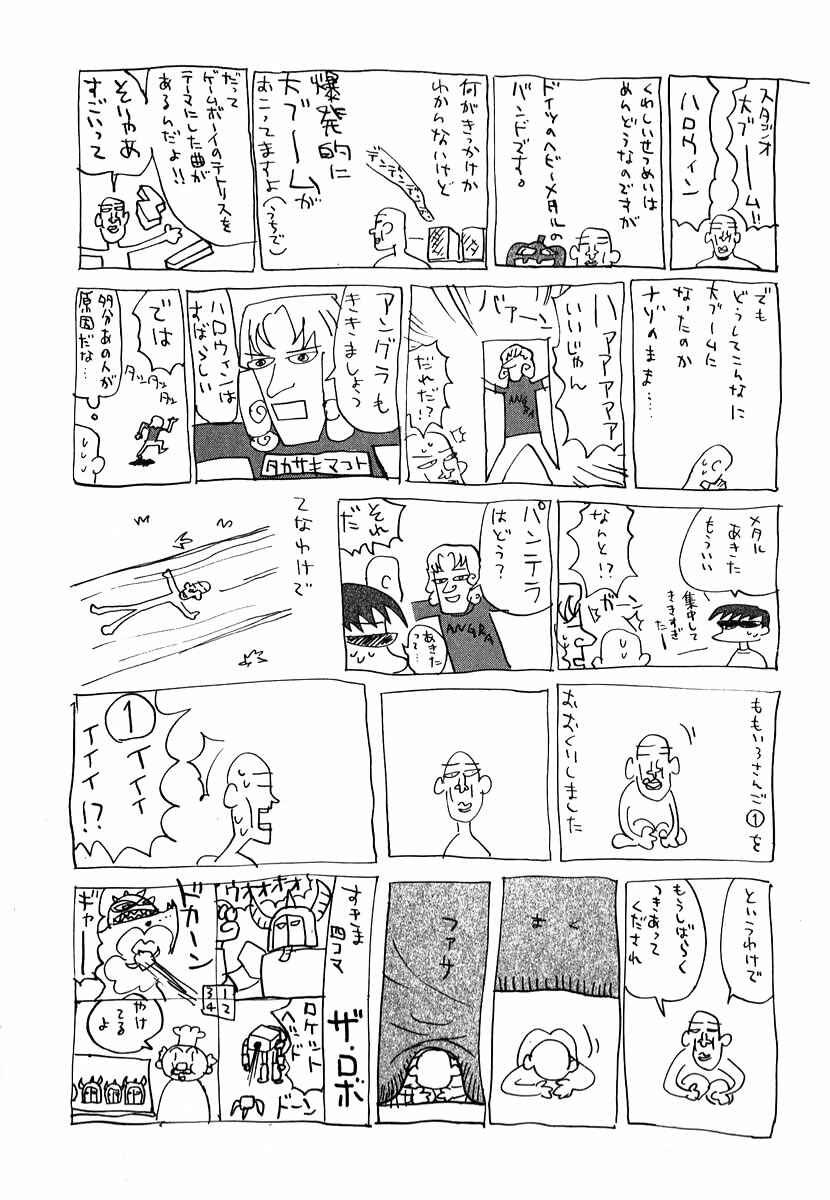 スタジオ
大ブーム!!
ハロウィン
くわしいせつめいは
めんどうなのですが
ドイツのヘビーメタルの
バンドです。
何がきっかけか
わからないけど
テーンテーンテーン
爆発的に
大ブームが
おこってますよ(うちで)
だって
ゲームボーイのテトリスを
テーマにした曲が
あるんだよ!!
そりゃあ
すごいって
でも
どうしてこんなに
大ブームに
なったのか
ナゾのまま……
ハァアアアアア
いいじゃん
バァーン
ANGRA
だれだ!?
アングラも
ききましょう
ハロウィンは
すばらしい
タカサキマコト
では
タッタッタッ
多分あの人が
原因だな…
メタル
あきた
もういい
集中して
ききすぎ
たー
なんと!?
ガーン
パンテラ
はどう?
それ
だ
ANGRA
あきた
って…
てなわけで
ももいろさんご①を
おおくりしました
①
イイイ
イイイ!?
というわけで
もうしばらく
つきあって
くだされ
まく
ファサ
すきま
四コマ
ザ・ロボ
ウオォホォ
ロケット
ヘッド
ドーン
ドカーン
ギャー
3 1
4 2
やけ
てる
よ